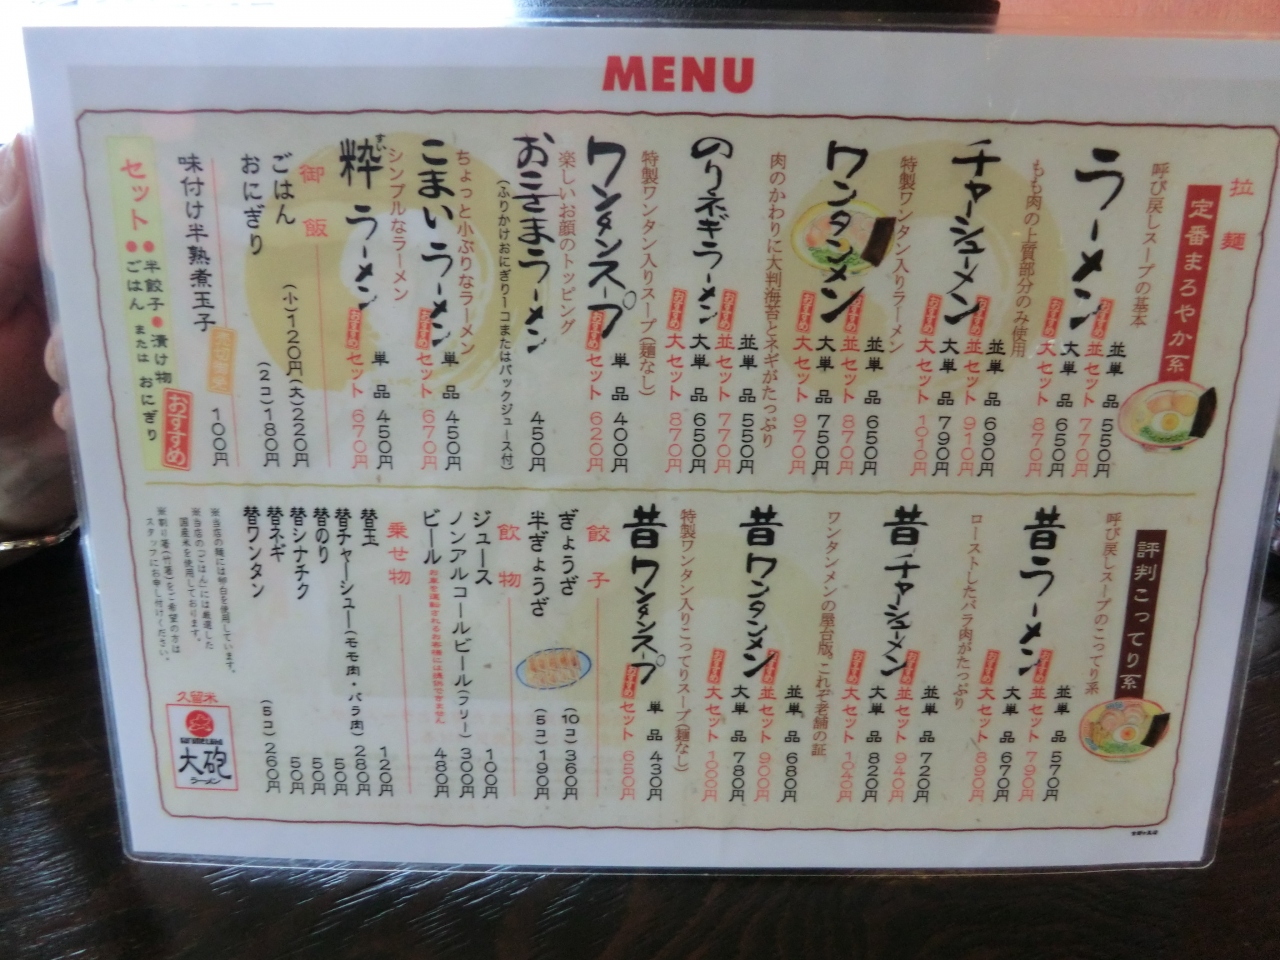 MENU
拉麺
定番まろやか系
呼び戻しスープの基本
ラーメン
並単品 550円
おすすめ 並セット 770円
大単品 650円
おすすめ 大セット 870円
もも肉の上質部分のみ使用
チャーシューメン
並単品 690円
おすすめ 並セット 910円
大単品 790円
おすすめ 大セット 1010円
特製ワンタン入りラーメン
ワンタンメン
並単品 650円
おすすめ 並セット 870円
大単品 750円
おすすめ 大セット 970円
肉のかわりに大判海苔とネギがたっぷり
のりネギラーメン
並単品 550円
おすすめ 並セット 770円
大単品 650円
おすすめ 大セット 870円
特製ワンタン入りスープ(麺なし)
ワンタンスープ
単品 400円
おすすめ セット 620円
楽しいお顔のトッピング
おこさまラーメン 450円
(ふりかけおにぎり一コまたはパックジュース付)
ちょっと小ぶりなラーメン
こまいラーメン
単品 450円
おすすめ セット 670円
シンプルなラーメン
粋ラーメン
すい
単品 450円
おすすめ セット 670円
御飯
ごはん (小)120円(大)220円
おにぎり (2コ)180円
味付け半熟煮玉子 100円
セット●●半餃子●漬け物
ごはん または おにぎり
おすすめ
評判こってり系
呼び戻しスープのこってり系
昔ラーメン
並単品 570円
おすすめ 並セット 790円
大単品 670円
おすすめ 大セット 890円
ローストしたバラ肉がたっぷり
昔チャーシューメン
並単品 720円
おすすめ 並セット 940円
大単品 820円
おすすめ 大セット 1040円
ワンタンメンの屋台版。これぞ老舗の証
昔ワンタンメン
並単品 680円
おすすめ 並セット 900円
大単品 780円
おすすめ 大セット 1000円
特製ワンタン入りこってりスープ(麺なし)
昔ワンタンスープ
単品 430円
おすすめ セット 650円
餃子
ぎょうざ (10コ)360円
半ぎょうざ (5コ)190円
飲物
ジュース 100円
ノンアルコールビール(フリー) 300円
ビール 480円
お車を運転されるお客様には提供できません
乗せ物
替玉 120円
替チャーシュー(モモ肉・バラ肉) 280円
替のり 50円
替シナチク 50円
替ネギ 50円
替ワンタン (5コ)260円
※当店の麺には卵白を使用しています。
※当店の「ごはん」には厳選した
国産米を使用しております。
※割り箸(竹箸)をご希望の方は
スタッフにお申し付けください。
久留米
大砲
ラーメン